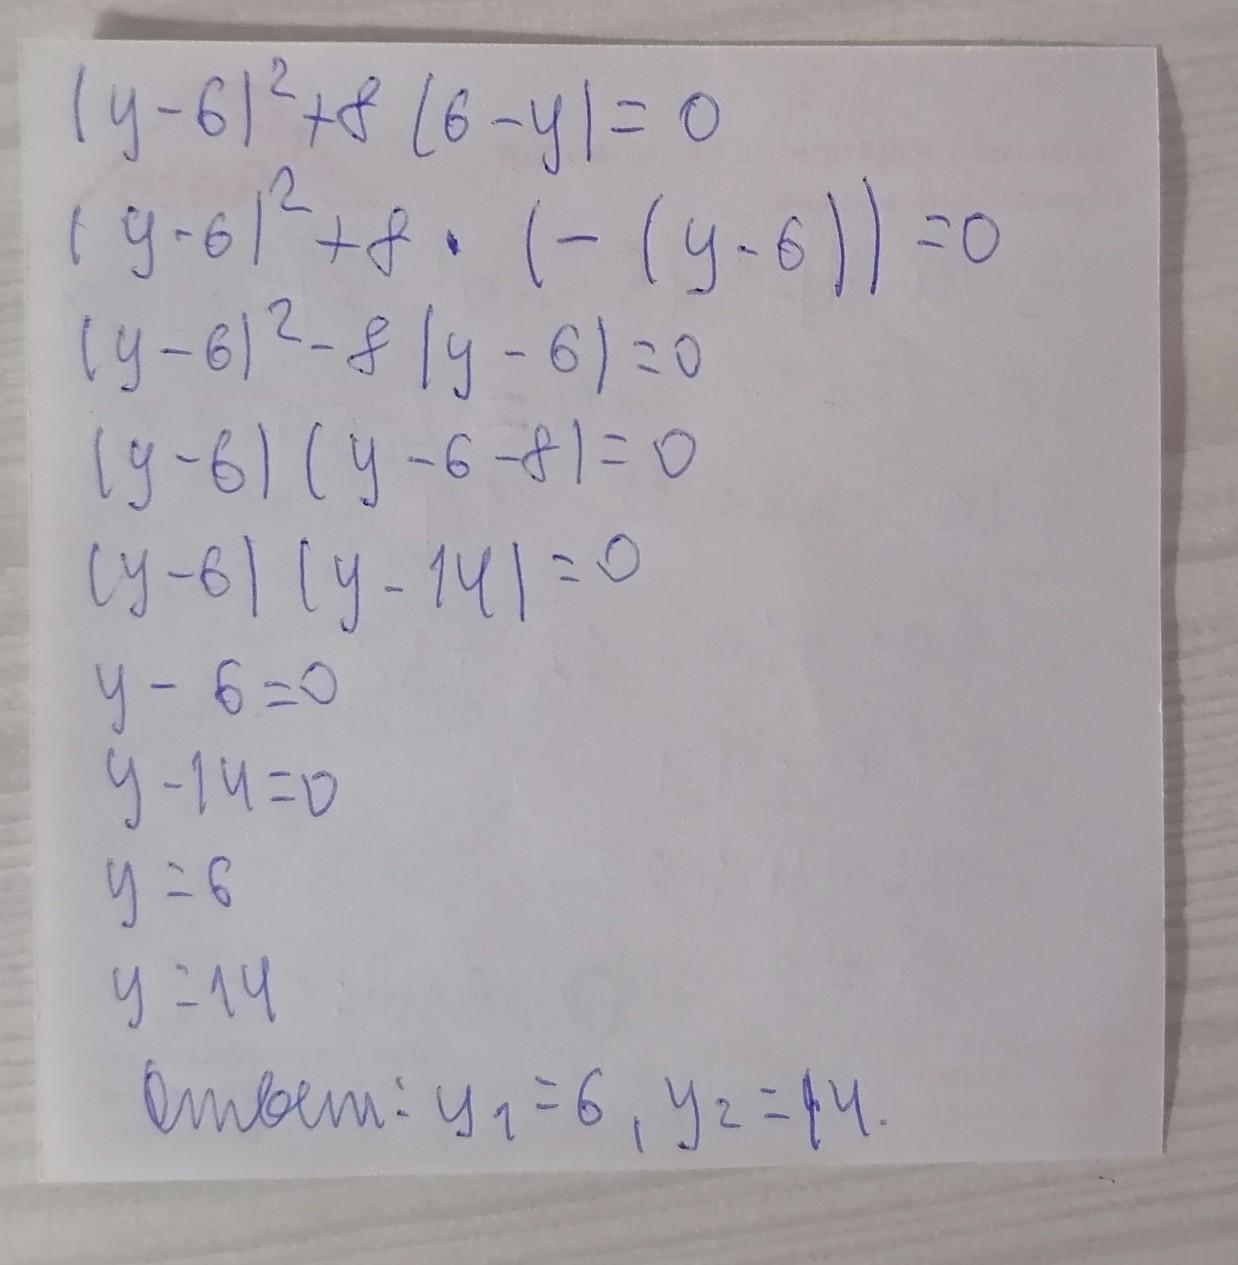 (y-6)²+8(6-y)=0
(y-6)²+8·(-(y-6))=0
(y-6)²-8(y-6)=0
(y-6)(y-6-8)=0
(y-6)(y-14)=0
y-6=0
y-14=0
y=6
y=14
Ответ: y₁=6, y₂=14.